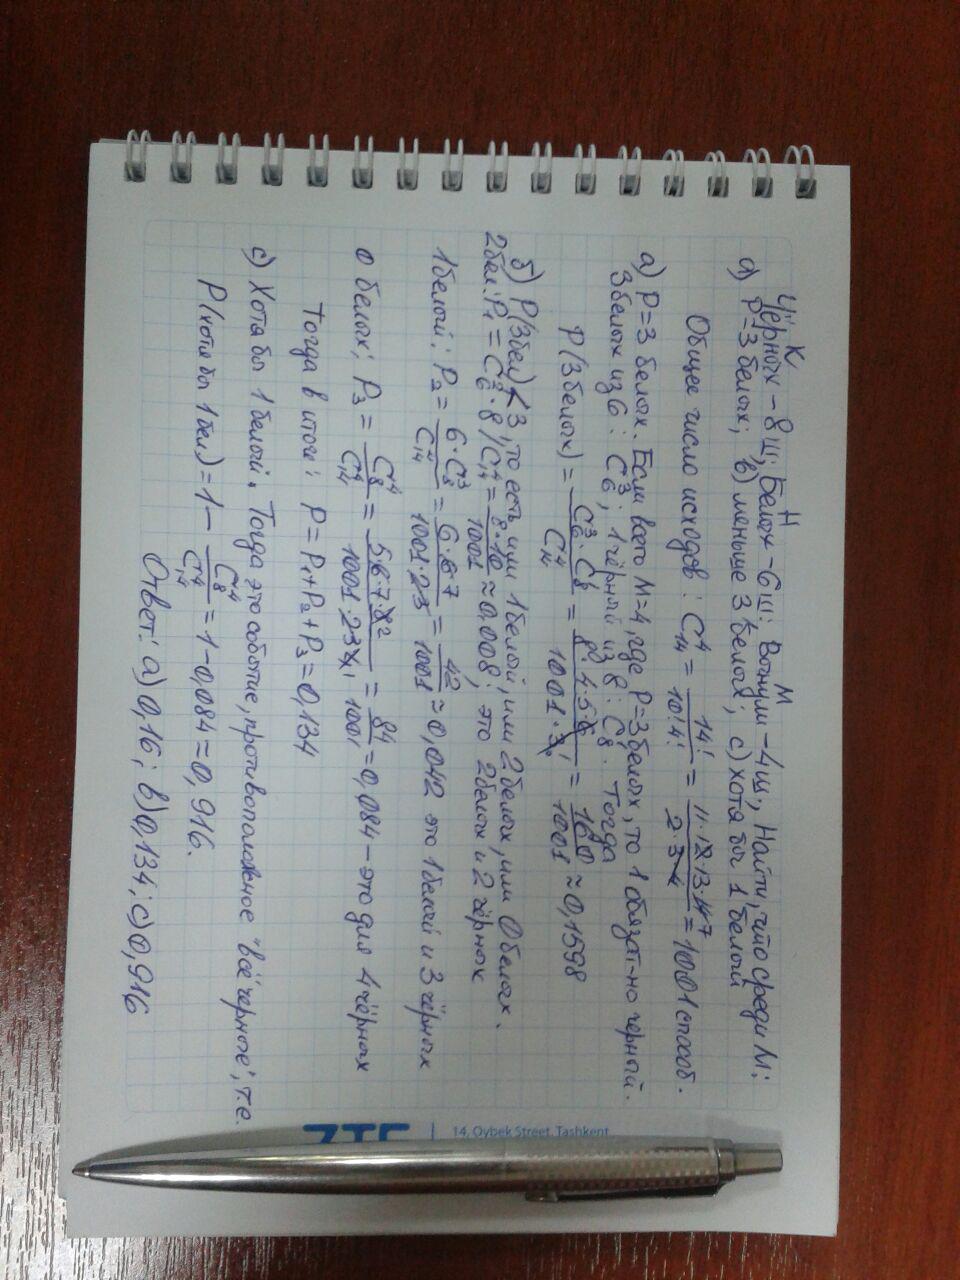 К Н М
Чёрных - 8 ш; Белых - 6 ш; Вынули - 4 ш., Найти, что среди М:
a) P=3 белых; в) меньше 3 белых; с) хотя бы 1 белый
Общее число исходов: C₁₄⁴ = 14!/10!4! = 11·12·13·14 7/2·3·4 = 1001 способ.
а) P=3 белых. Если всего М=4, где P=3 белых, то 1 обязат-но черный.
3 белых из 6: C₆³; 1 чёрный из 8: C₈¹. Тогда
P(3 белых) = C₆³·C₈¹/C₁₄⁴ = 8·4·5·6/1001·3! = 160/1001 ≈ 0,1598
б) P(3 бел) < 3, то есть или 1 белой, или 2 белых, или 0 белых.
2 бел: P₁ = C₆²·8/C₁₄⁴ = 8·10/1001 ≈ 0,008; это 2 белых и 2 чёрных
1 белой: P₂ = 6·C₈³/C₁₄⁴ = 6·6·7/1001·23 = 42/1001 ≈ 0,042 это 1 белый и 3 чёрных
0 белых: P₃ = C₈⁴/C₁₄⁴ = 5·6·7·8 2/1001·234 = 84/1001 = 0,084 - это для 4 чёрных
Тогда в итоге: P = P₁ + P₂ + P₃ = 0,134
с) Хотя бы 1 белый. Тогда это событие, противоположное "всё черные", т.е.
P(хотя бы 1 бел.) = 1 - C₈⁴/C₁₄⁴ = 1 - 0,084 = 0,916.
Ответ: а) 0,16; в) 0,134; с) 0,916
14, Oybek Street, Tashkent